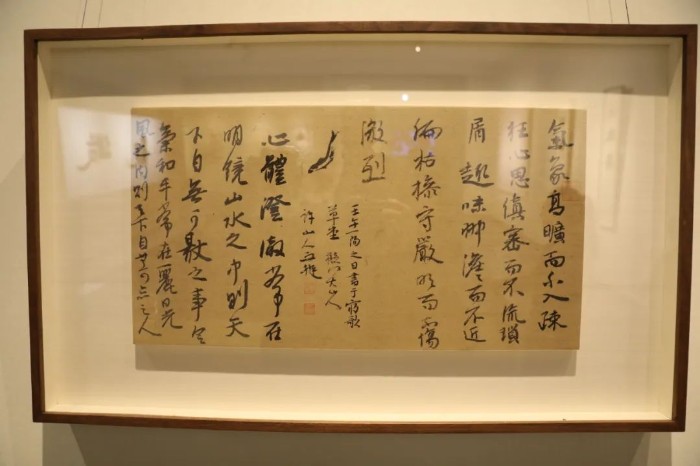 氣象高曠而不入疎
狂心思縝審而不流瑣
屑趣味沖澹而不近
偏枯操守嚴明而傷
激烈
壬午一陽之日書于寤歌
草堂 八大山人
山人題
心體澄徹常在
明鏡止水之中則天
下自無可厭之事意
氣和平常在麗日光
風之內則天下自無可之人